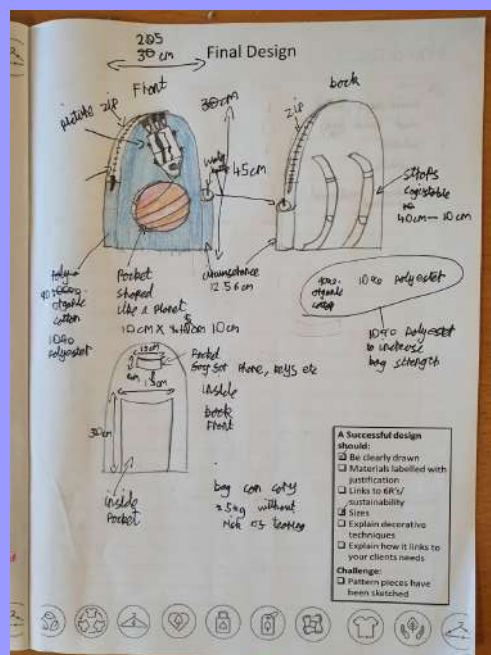 205
30 cm
Final Design
Front
back
picture
zip
30cm
45cm
zip
straps
40cm — 10cm
90%
organic
cotton
10%
Polyester
Pocket
shaped
like a planet
10cm
circumstance
12.56cm
90%.
organic
cotton
10% Polyester
10% Polyester
to increase
bag strength
Pocket
for phone, keys etc
inside
book
Front
30cm
inside
Pocket
bag can cary
25kg without
risk of tearing
A Successful design
should:
Be clearly drawn
Materials labelled with
justification
Links to 6R's/
sustainability
Sizes
Explain decorative
techniques
Explain how it links to
your clients needs
Challenge:
Pattern pieces have
been sketched